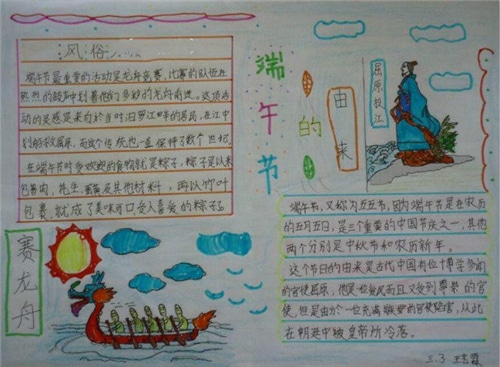 风俗……
端午节最重要的活动是龙舟竞赛，比赛的队伍在
热烈的鼓声中划着他们多彩的龙舟前进。这项活
动的灵感是来自於当时汨罗江畔的居民，在江中
划船救屈原，而这个传统也一直保持了数个世纪。
在端午节时受欢迎的食物就是粽子，粽子是以米
包著肉、花生、蛋黄及其他材料，再以竹叶
包裹，就成了美味可口令人喜爱的粽子。
端午节
的
由来
屈原投江
赛龙舟
端午节，又称为五五节，因为端午节是在农历
的五月五日，是三个重要的中国节庆之一，其他
两个分别是中秋节和农历新年。
这个节日的由来是古代中国有位博学多闻
的官使屈原，他是位爱民而且又受到尊崇的官
使，但是由於一位充满嫉妒的官使陷害，从此
在朝廷中被皇帝所冷落。
三.3